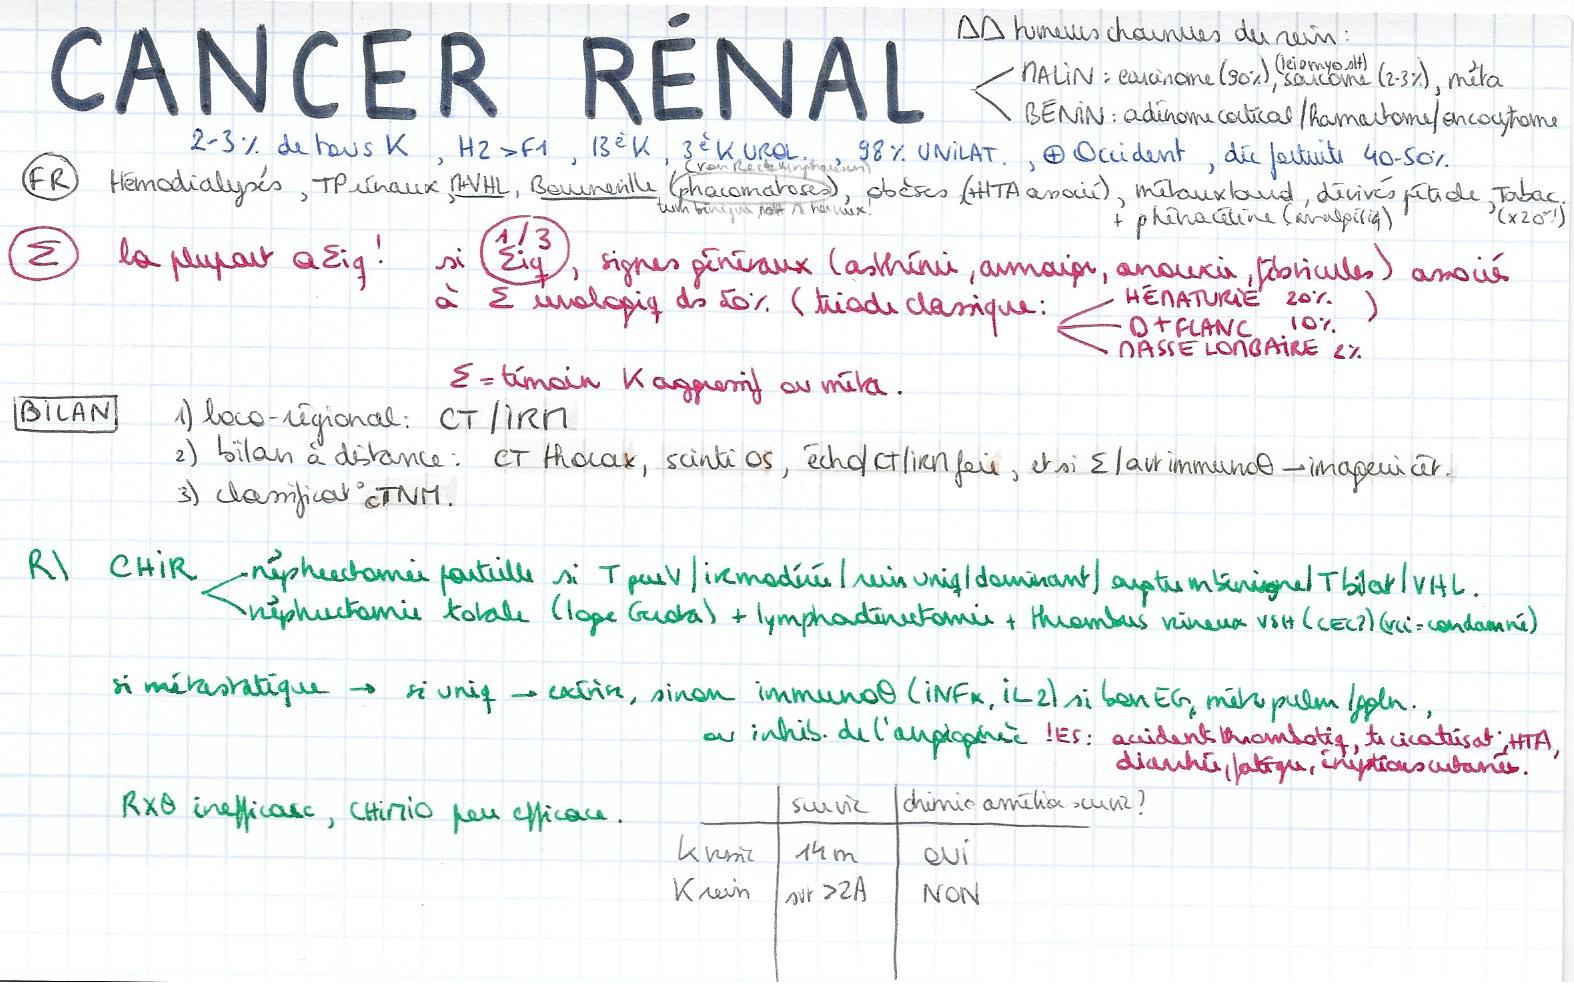 CANCER RÉNAL
ΔΔ tumeurs charnues du rein :
MALIN : carcinome (90%), sarcome (2-3%), méta
(leiomyo st)
BÉNIN : adénome cortical / hamartome / oncocytome
2-3% de tous K , H2 > F1 , 13è K , 3è K UROL. , 98% UNILAT. , ⊕ Occident , déc fortuite 40-50%.
(von Recklinghausen)
FR Hémodialysés , TP rénaux , VHL , Bourneville (phacomatoses), obèses (HTA associé) , métaux lourd , dérivés pétrole , Tabac.
+ phénacétine (analgésiq) (x20)
Σ la plupart aΣiq ! si 1/3 Σiq , signes généraux (asthénie , amaigr, anorexie , fébricules) associé
à Σ urologiq ds 50% (triade classique :
HÉMATURIE 20%
D+ FLANC 10%
MASSE LOMBAIRE 2%
)
Σ = témoin K aggressif ou méta.
BILAN 1) loco-régional : CT / IRM
2) bilan à distance : CT thorax , scinti OS , écho/CT/IRM foie , et si Σ / avt immunoθ → imagerie cér.
3) classificat° cTNM.
R\ CHIR
néphrectomie partielle si T peu V / ir modérée / rein uniq / dominant / bénigne / T bilat / VHL.
néphrectomie totale (loge Gerota) + lymphadénectomie + thrombus veineux VSH (CEC?) (vci = condamné)
si métastatique → si uniq → exérèse, sinon immunoθ (INFα, IL2) si bon EG, méta pulm / ggln. ,
ou inhib. de l'angiogénèse ! ES : accidents thrombotiq, cicatrisat°, HTA,
diarrhée, fatigue, éruptions cutanées.
RXθ inefficace , CHIMIO peu efficace.
survie | chimio améliore survie ?
K vessie | 14 m | OUI
K rein | svt >2A | NON